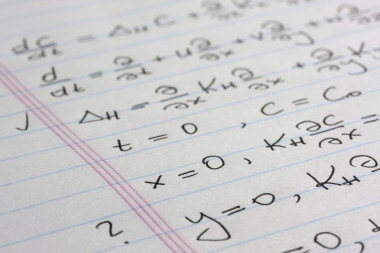 dc/dt = Δ_H C +
d/dt = ∂/∂t + u ∂/∂x + v ∂/∂y +
, Δ_H = ∂/∂x K_H ∂/∂x + ∂/∂y K
t = 0 , C = C₀
x = 0 , K_H ∂C/∂x =
? y = 0 , K_H ∂
= 0 ,